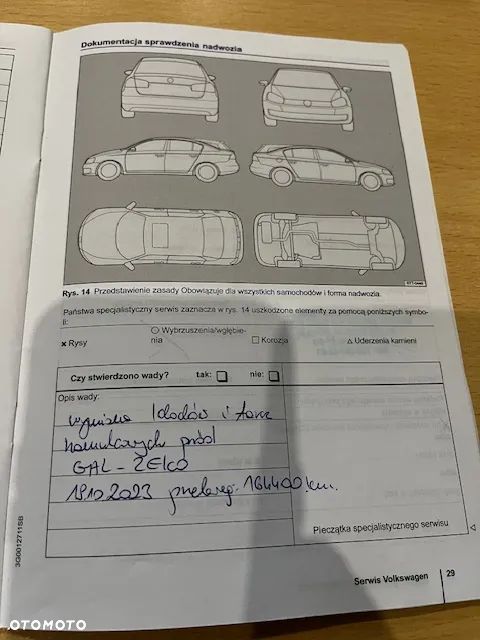 Dokumentacja sprawdzenia nadwozia
Rys. 14 Przedstawienie zasady Obowiązuje dla wszystkich samochodów i forma nadwozia.
Państwa specjalistyczny serwis zaznacza w rys. 14 uszkodzone elementy za pomocą poniższych symbo-
li:
x Rysy
○ Wybrzuszenia/wgłębie-
nia
□ Korozja
△ Uderzenia kamieni
Czy stwierdzono wady?
tak: □
nie: □
Opis wady:
wymiana klocków i tarcz
hamulcowych przód
GAL-ŻELCO
19.10.2023 przebieg: 164400 km.
Pieczątka specjalistycznego serwisu
3G0012711SB
Serwis Volkswagen
29
OTOMOTO